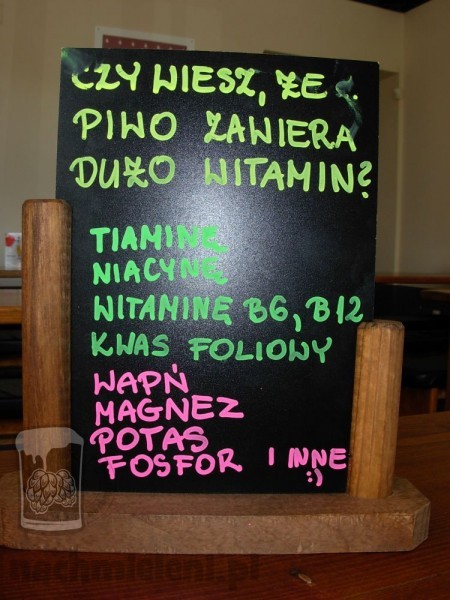 CZY WIESZ, ŻE ...
PIWO ZAWIERA
DUŻO WITAMIN?
TIAMINĘ
NIACYNĘ
WITAMINĘ B6, B12
KWAS FOLIOWY
WAPŃ
MAGNEZ
POTAS
FOSFOR I INNE
:)
nachmieleni.pl